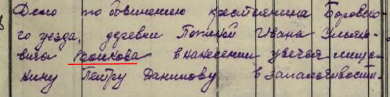 Дело по обвинению крестьянина Боровско-
го уезда, деревни Ивана
вича в нанесении увечья меща-
нину Петру Данилову в запальчивости.